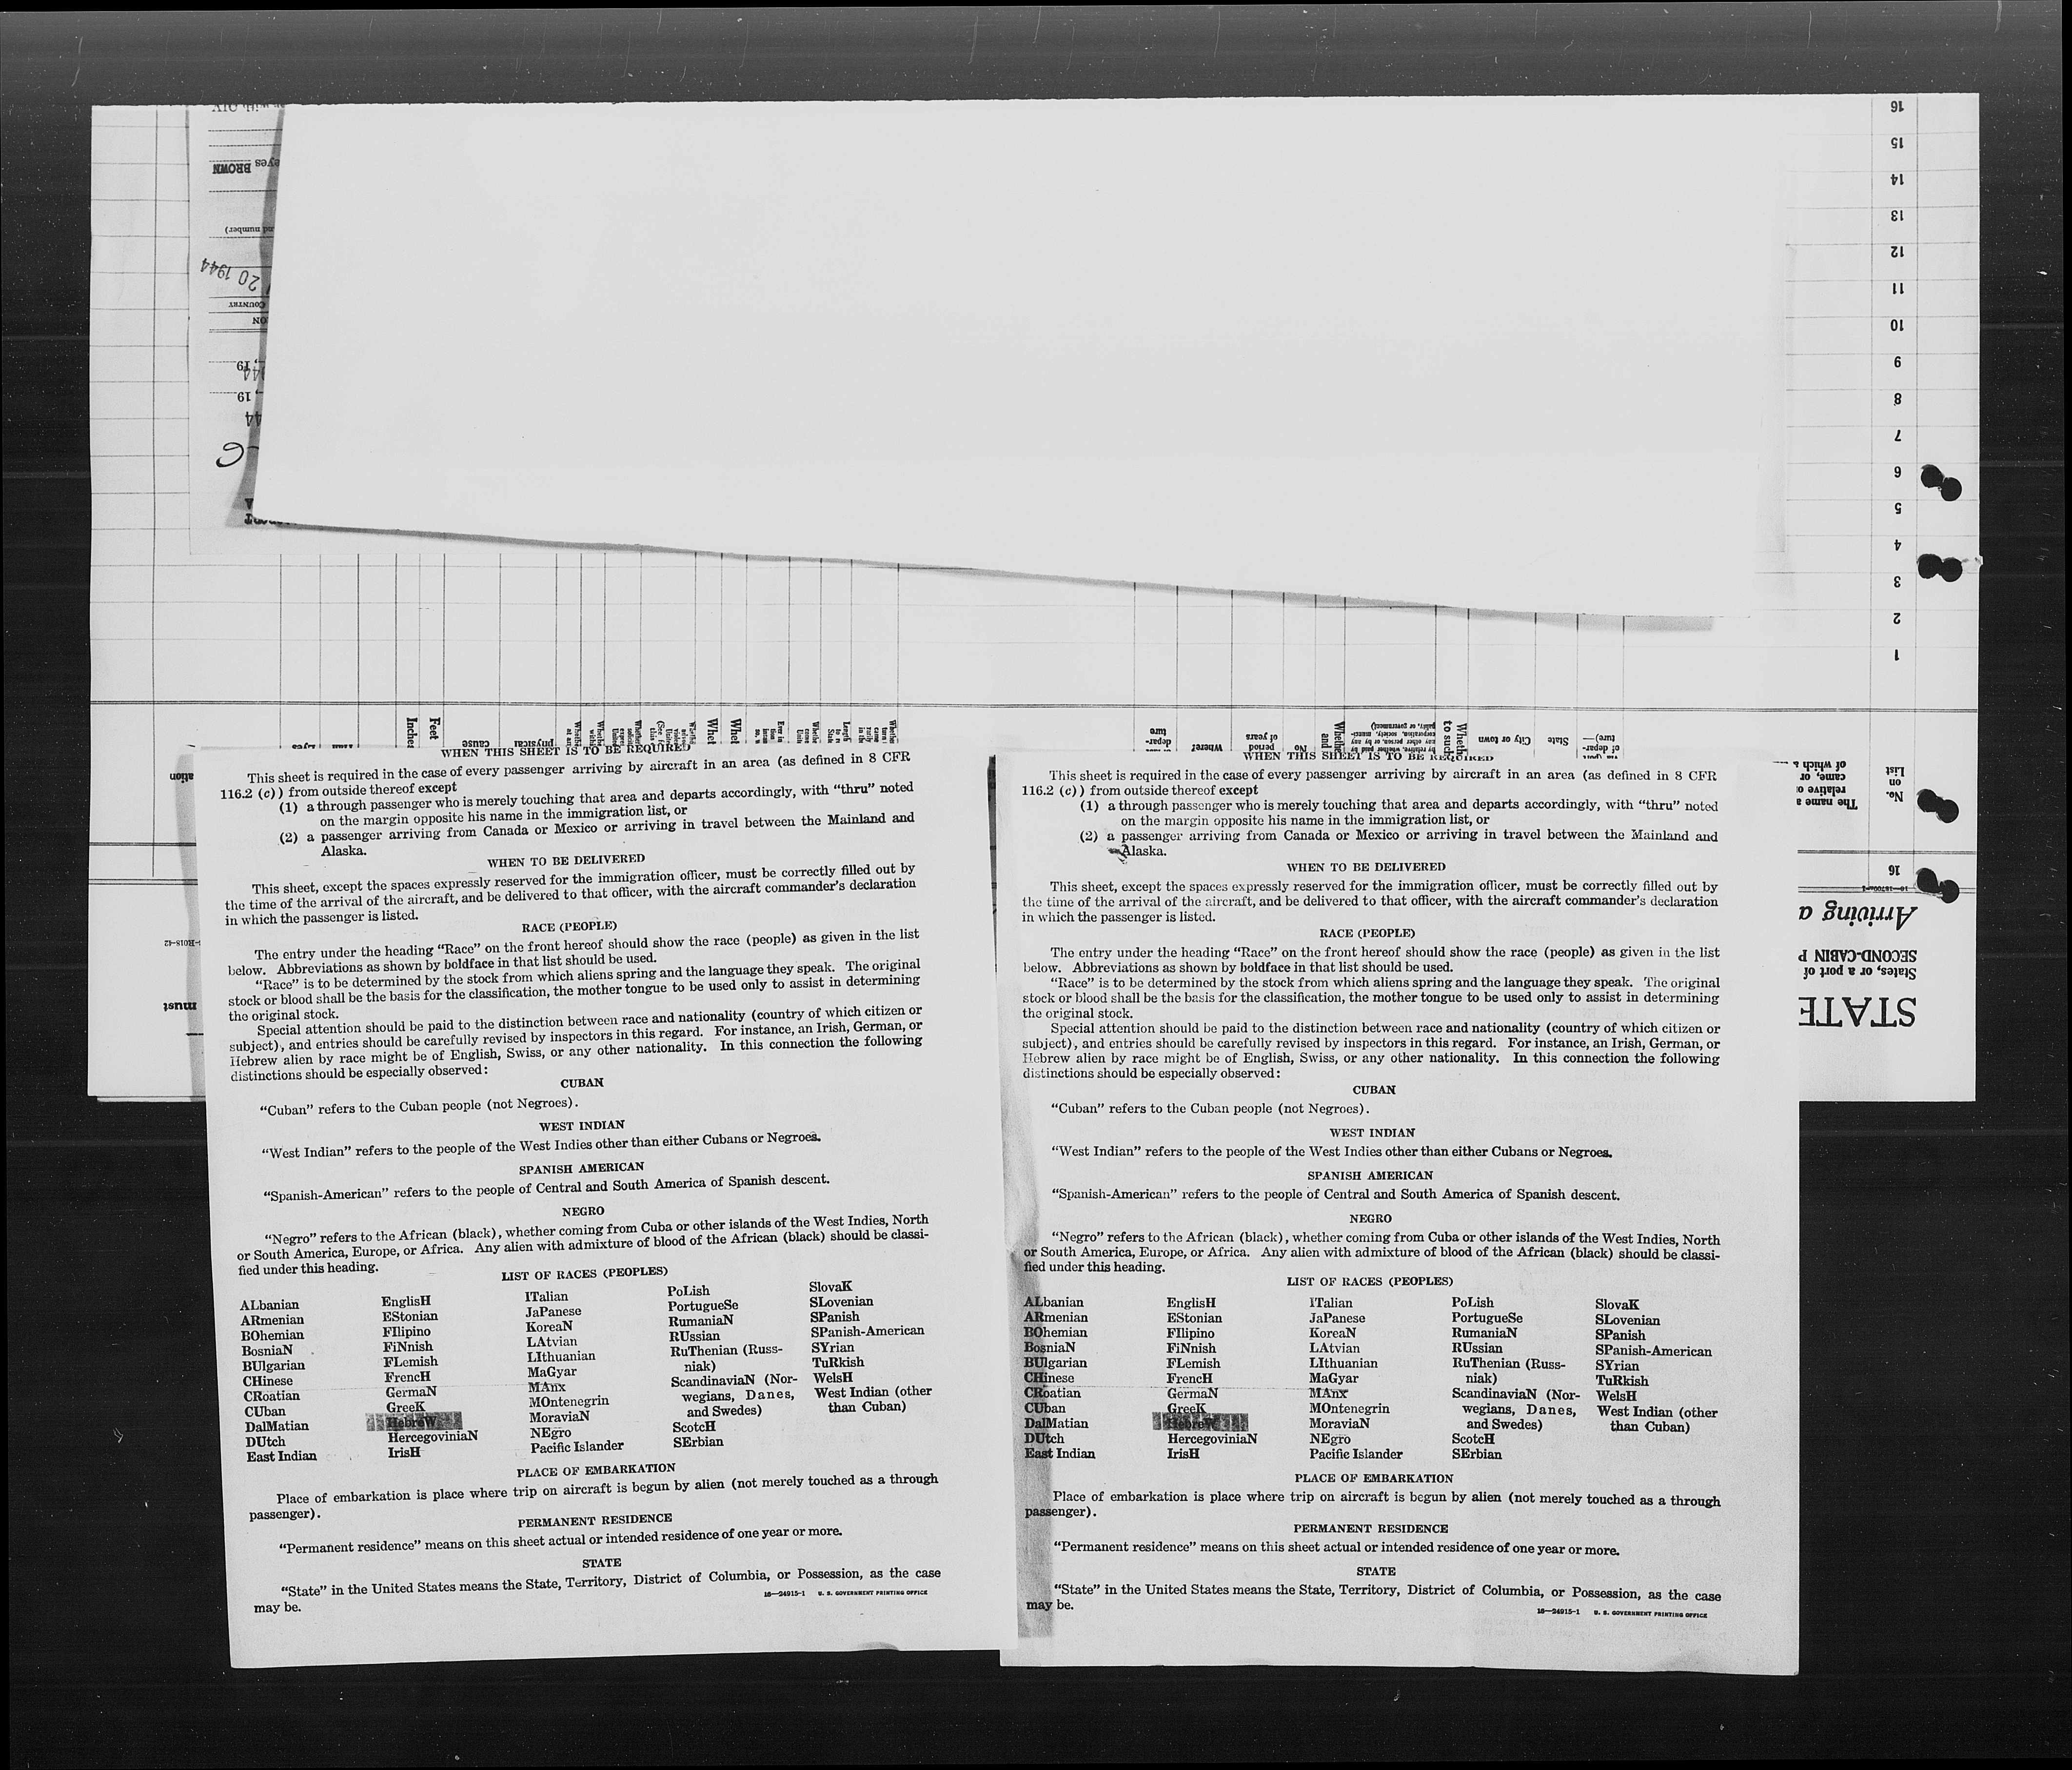 WHEN THIS SHEET IS TO BE REQUIRED
This sheet is required in the case of every passenger arriving by aircraft in an area (as defined in 8 CFR
116.2 (c)) from outside thereof except
(1) a through passenger who is merely touching that area and departs accordingly, with “thru” noted
on the margin opposite his name in the immigration list, or
(2) a passenger arriving from Canada or Mexico or arriving in travel between the Mainland and
Alaska.
WHEN TO BE DELIVERED
This sheet, except the spaces expressly reserved for the immigration officer, must be correctly filled out by
the time of the arrival of the aircraft, and be delivered to that officer, with the aircraft commander’s declaration
in which the passenger is listed.
RACE (PEOPLE)
The entry under the heading “Race” on the front hereof should show the race (people) as given in the list
below. Abbreviations as shown by boldface in that list should be used.
“Race” is to be determined by the stock from which aliens spring and the language they speak. The original
stock or blood shall be the basis for the classification, the mother tongue to be used only to assist in determining
the original stock.
Special attention should be paid to the distinction between race and nationality (country of which citizen or
subject), and entries should be carefully revised by inspectors in this regard. For instance, an Irish, German, or
Hebrew alien by race might be of English, Swiss, or any other nationality. In this connection the following
distinctions should be especially observed:
CUBAN
“Cuban” refers to the Cuban people (not Negroes).
WEST INDIAN
“West Indian” refers to the people of the West Indies other than either Cubans or Negroes.
SPANISH AMERICAN
“Spanish-American” refers to the people of Central and South America of Spanish descent.
NEGRO
“Negro” refers to the African (black), whether coming from Cuba or other islands of the West Indies, North
or South America, Europe, or Africa. Any alien with admixture of blood of the African (black) should be classi-
fied under this heading.
LIST OF RACES (PEOPLES)
ALbanian
ARmenian
BOhemian
BosniaN
BUlgarian
CHinese
CRoatian
CUban
DalMatian
DUtch
East Indian
EnglisH
EStonian
FIlipino
FiNnish
FLemish
FrencH
GermaN
GreeK
HebreW
HercegoviniaN
IrisH
ITalian
JaPanese
KoreaN
LAtvian
LIthuanian
MaGyar
MAnx
MOntenegrin
MoraviaN
NEgro
Pacific Islander
PoLish
PortugueSe
RumaniaN
RUssian
RuThenian (Russ-
niak)
ScandinaviaN (Nor-
wegians, Danes,
and Swedes)
ScotcH
SErbian
SlovaK
SLovenian
SPanish
SPanish-American
SYrian
TuRkish
WelsH
West Indian (other
than Cuban)
PLACE OF EMBARKATION
Place of embarkation is place where trip on aircraft is begun by alien (not merely touched as a through
passenger).
PERMANENT RESIDENCE
“Permanent residence” means on this sheet actual or intended residence of one year or more.
STATE
“State” in the United States means the State, Territory, District of Columbia, or Possession, as the case
may be.
16—24915-1 U. S. GOVERNMENT PRINTING OFFICE
WHEN THIS SHEET IS TO BE REQUIRED
This sheet is required in the case of every passenger arriving by aircraft in an area (as defined in 8 CFR
116.2 (c)) from outside thereof except
(1) a through passenger who is merely touching that area and departs accordingly, with “thru” noted
on the margin opposite his name in the immigration list, or
(2) a passenger arriving from Canada or Mexico or arriving in travel between the Mainland and
Alaska.
WHEN TO BE DELIVERED
This sheet, except the spaces expressly reserved for the immigration officer, must be correctly filled out by
the time of the arrival of the aircraft, and be delivered to that officer, with the aircraft commander’s declaration
in which the passenger is listed.
RACE (PEOPLE)
The entry under the heading “Race” on the front hereof should show the race (people) as given in the list
below. Abbreviations as shown by boldface in that list should be used.
“Race” is to be determined by the stock from which aliens spring and the language they speak. The original
stock or blood shall be the basis for the classification, the mother tongue to be used only to assist in determining
the original stock.
Special attention should be paid to the distinction between race and nationality (country of which citizen or
subject), and entries should be carefully revised by inspectors in this regard. For instance, an Irish, German, or
Hebrew alien by race might be of English, Swiss, or any other nationality. In this connection the following
distinctions should be especially observed:
CUBAN
“Cuban” refers to the Cuban people (not Negroes).
WEST INDIAN
“West Indian” refers to the people of the West Indies other than either Cubans or Negroes.
SPANISH AMERICAN
“Spanish-American” refers to the people of Central and South America of Spanish descent.
NEGRO
“Negro” refers to the African (black), whether coming from Cuba or other islands of the West Indies, North
or South America, Europe, or Africa. Any alien with admixture of blood of the African (black) should be classi-
fied under this heading.
LIST OF RACES (PEOPLES)
ALbanian
ARmenian
BOhemian
BosniaN
BUlgarian
CHinese
CRoatian
CUban
DalMatian
DUtch
East Indian
EnglisH
EStonian
FIlipino
FiNnish
FLemish
FrencH
GermaN
GreeK
HebreW
HercegoviniaN
IrisH
ITalian
JaPanese
KoreaN
LAtvian
LIthuanian
MaGyar
MAnx
MOntenegrin
MoraviaN
NEgro
Pacific Islander
PoLish
PortugueSe
RumaniaN
RUssian
RuThenian (Russ-
niak)
ScandinaviaN (Nor-
wegians, Danes,
and Swedes)
ScotcH
SErbian
SlovaK
SLovenian
SPanish
SPanish-American
SYrian
TuRkish
WelsH
West Indian (other
than Cuban)
PLACE OF EMBARKATION
Place of embarkation is place where trip on aircraft is begun by alien (not merely touched as a through
passenger).
PERMANENT RESIDENCE
“Permanent residence” means on this sheet actual or intended residence of one year or more.
STATE
“State” in the United States means the State, Territory, District of Columbia, or Possession, as the case
may be.
16—24915-1 U. S. GOVERNMENT PRINTING OFFICE
STATE
States, or a port of
SECOND-CABIN P
Arriving a
16
No.
on
List
The name a
relative o
came, or
of which
City or town
State
Whether
No
period
of years
Feet
physical
cause
must
1
2
3
4
5
6
7
8
9
10
11
12
13
14
15
16
eyes BROWN
nd number)
20 1944
COUNTRY
, 19
44
, 19
44